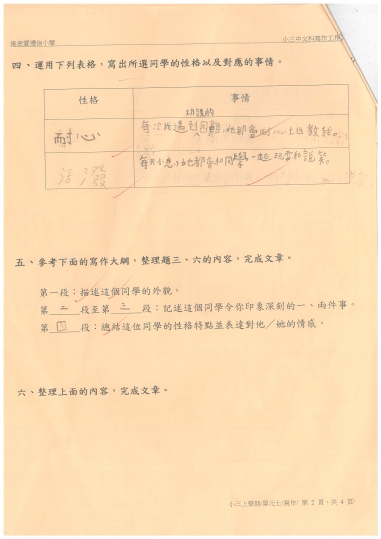 小三中文科寫作工作
四、運用下列表格，寫出所選同學的性格以及對應的事情。
性格
事情
功課的
耐心
每次我遇到困難，她都會耐心地教我。
活潑
每天小息，她都會和同學一起玩耍和說笑。
五、參考下面的寫作大綱，整理題三、六的內容，完成文章。
第一段：描述這個同學的外貌。
第二段至第三段：記述這個同學令你印象深刻的一、兩件事。
第四段：總結這位同學的性格特點並表達對他／她的情感。
六、整理上面的內容，完成文章。
小三上學期/單元七/寫作/ 第 2 頁，共 4 頁/